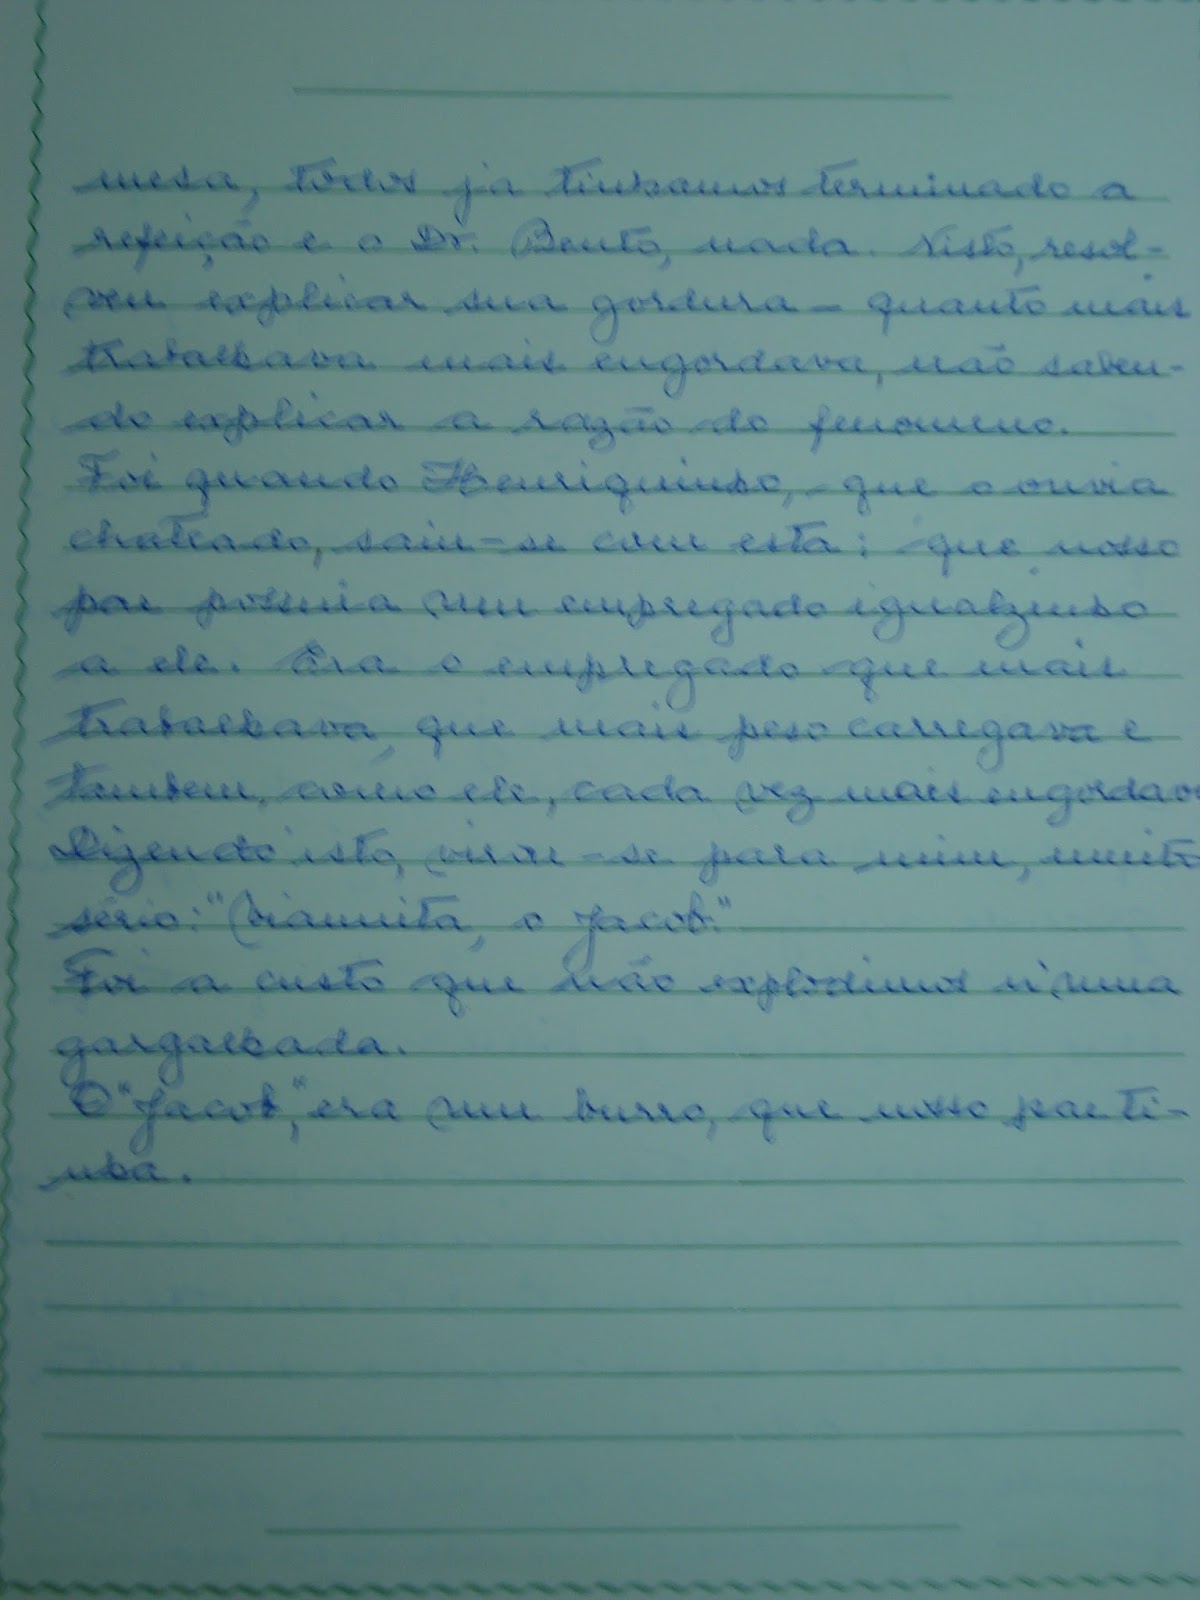 mesa, todos ja tinhamos terminado a
refeição e o Dr. Bento, nada. Nisto, resol-
veu explicar sua gordura - quanto mais
trabalhava mais engordava, não saben-
do explicar a razão do fenomeno.
Foi quando Henriquinho, que o ouvia
chateado, saiu-se com esta: que nosso
pae possuia um empregado igualzinho
a ele. Era o empregado que mais
trabalhava, que mais peso carregava e
tambem, como ele, cada vez mais engordava
Dizendo isto, virou-se para mim, muito
sério: "Viannita, o Jacob."
Foi a custo que não explodimos n'uma
gargalhada.
O "Jacob", era um burro, que nosso pae ti-
nha.